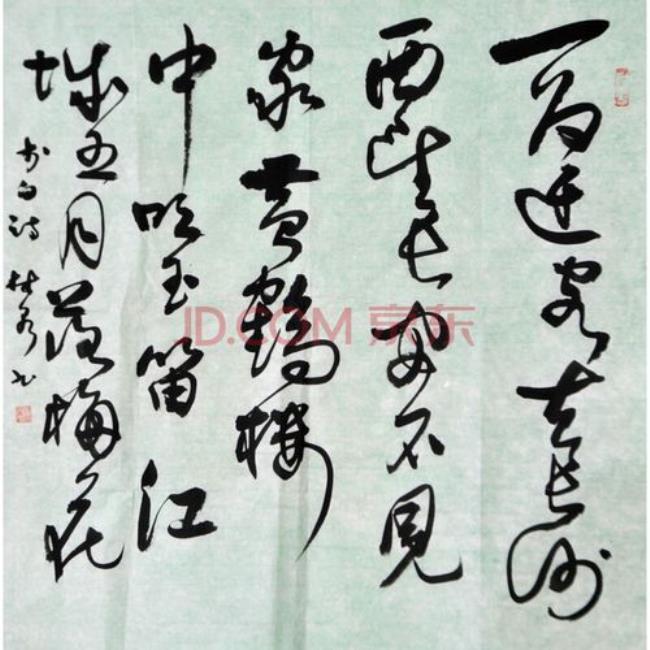 一为迁客去长沙
西望长安不見
家黄鶴樓
中吹玉笛江
城五月落梅花
李白诗
书
JD.COM 京东